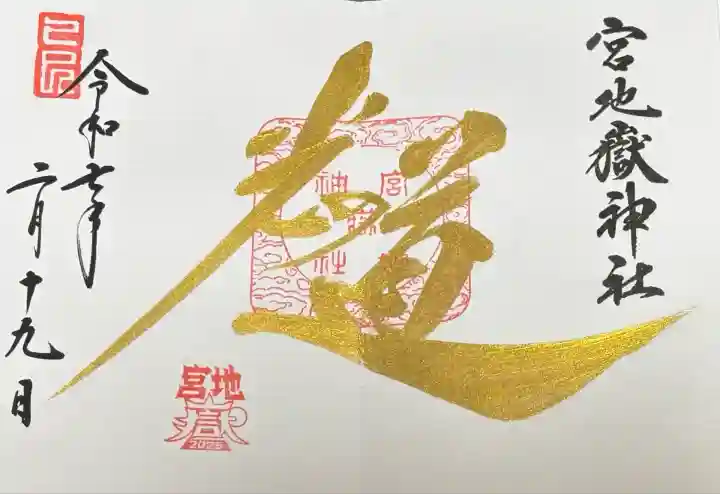 宮地嶽神社
光の道
宮地
嶽
神社
令和七年
二月十九日
宮地
嶽
2025